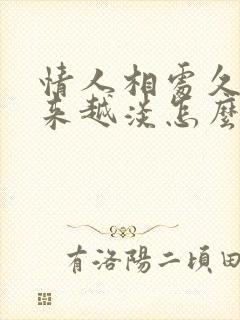 情人相處久
來越淡怎麼
有洛陽二頃田